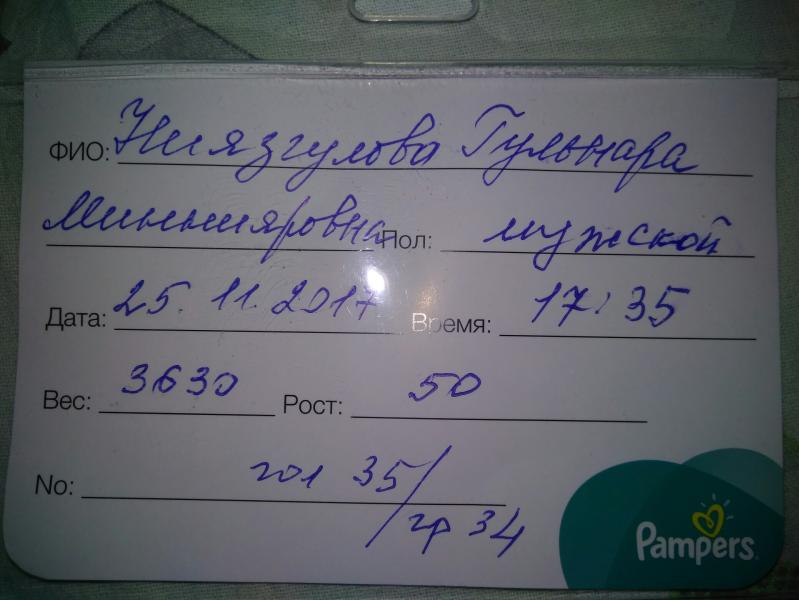 ФИО: Ниязгулова Гульнара
Минньяровна Пол: мужской
Дата: 25.11.2017 Время: 17:35
Вес: 3630 Рост: 50
No: гол 35/
гр 34
Pampers